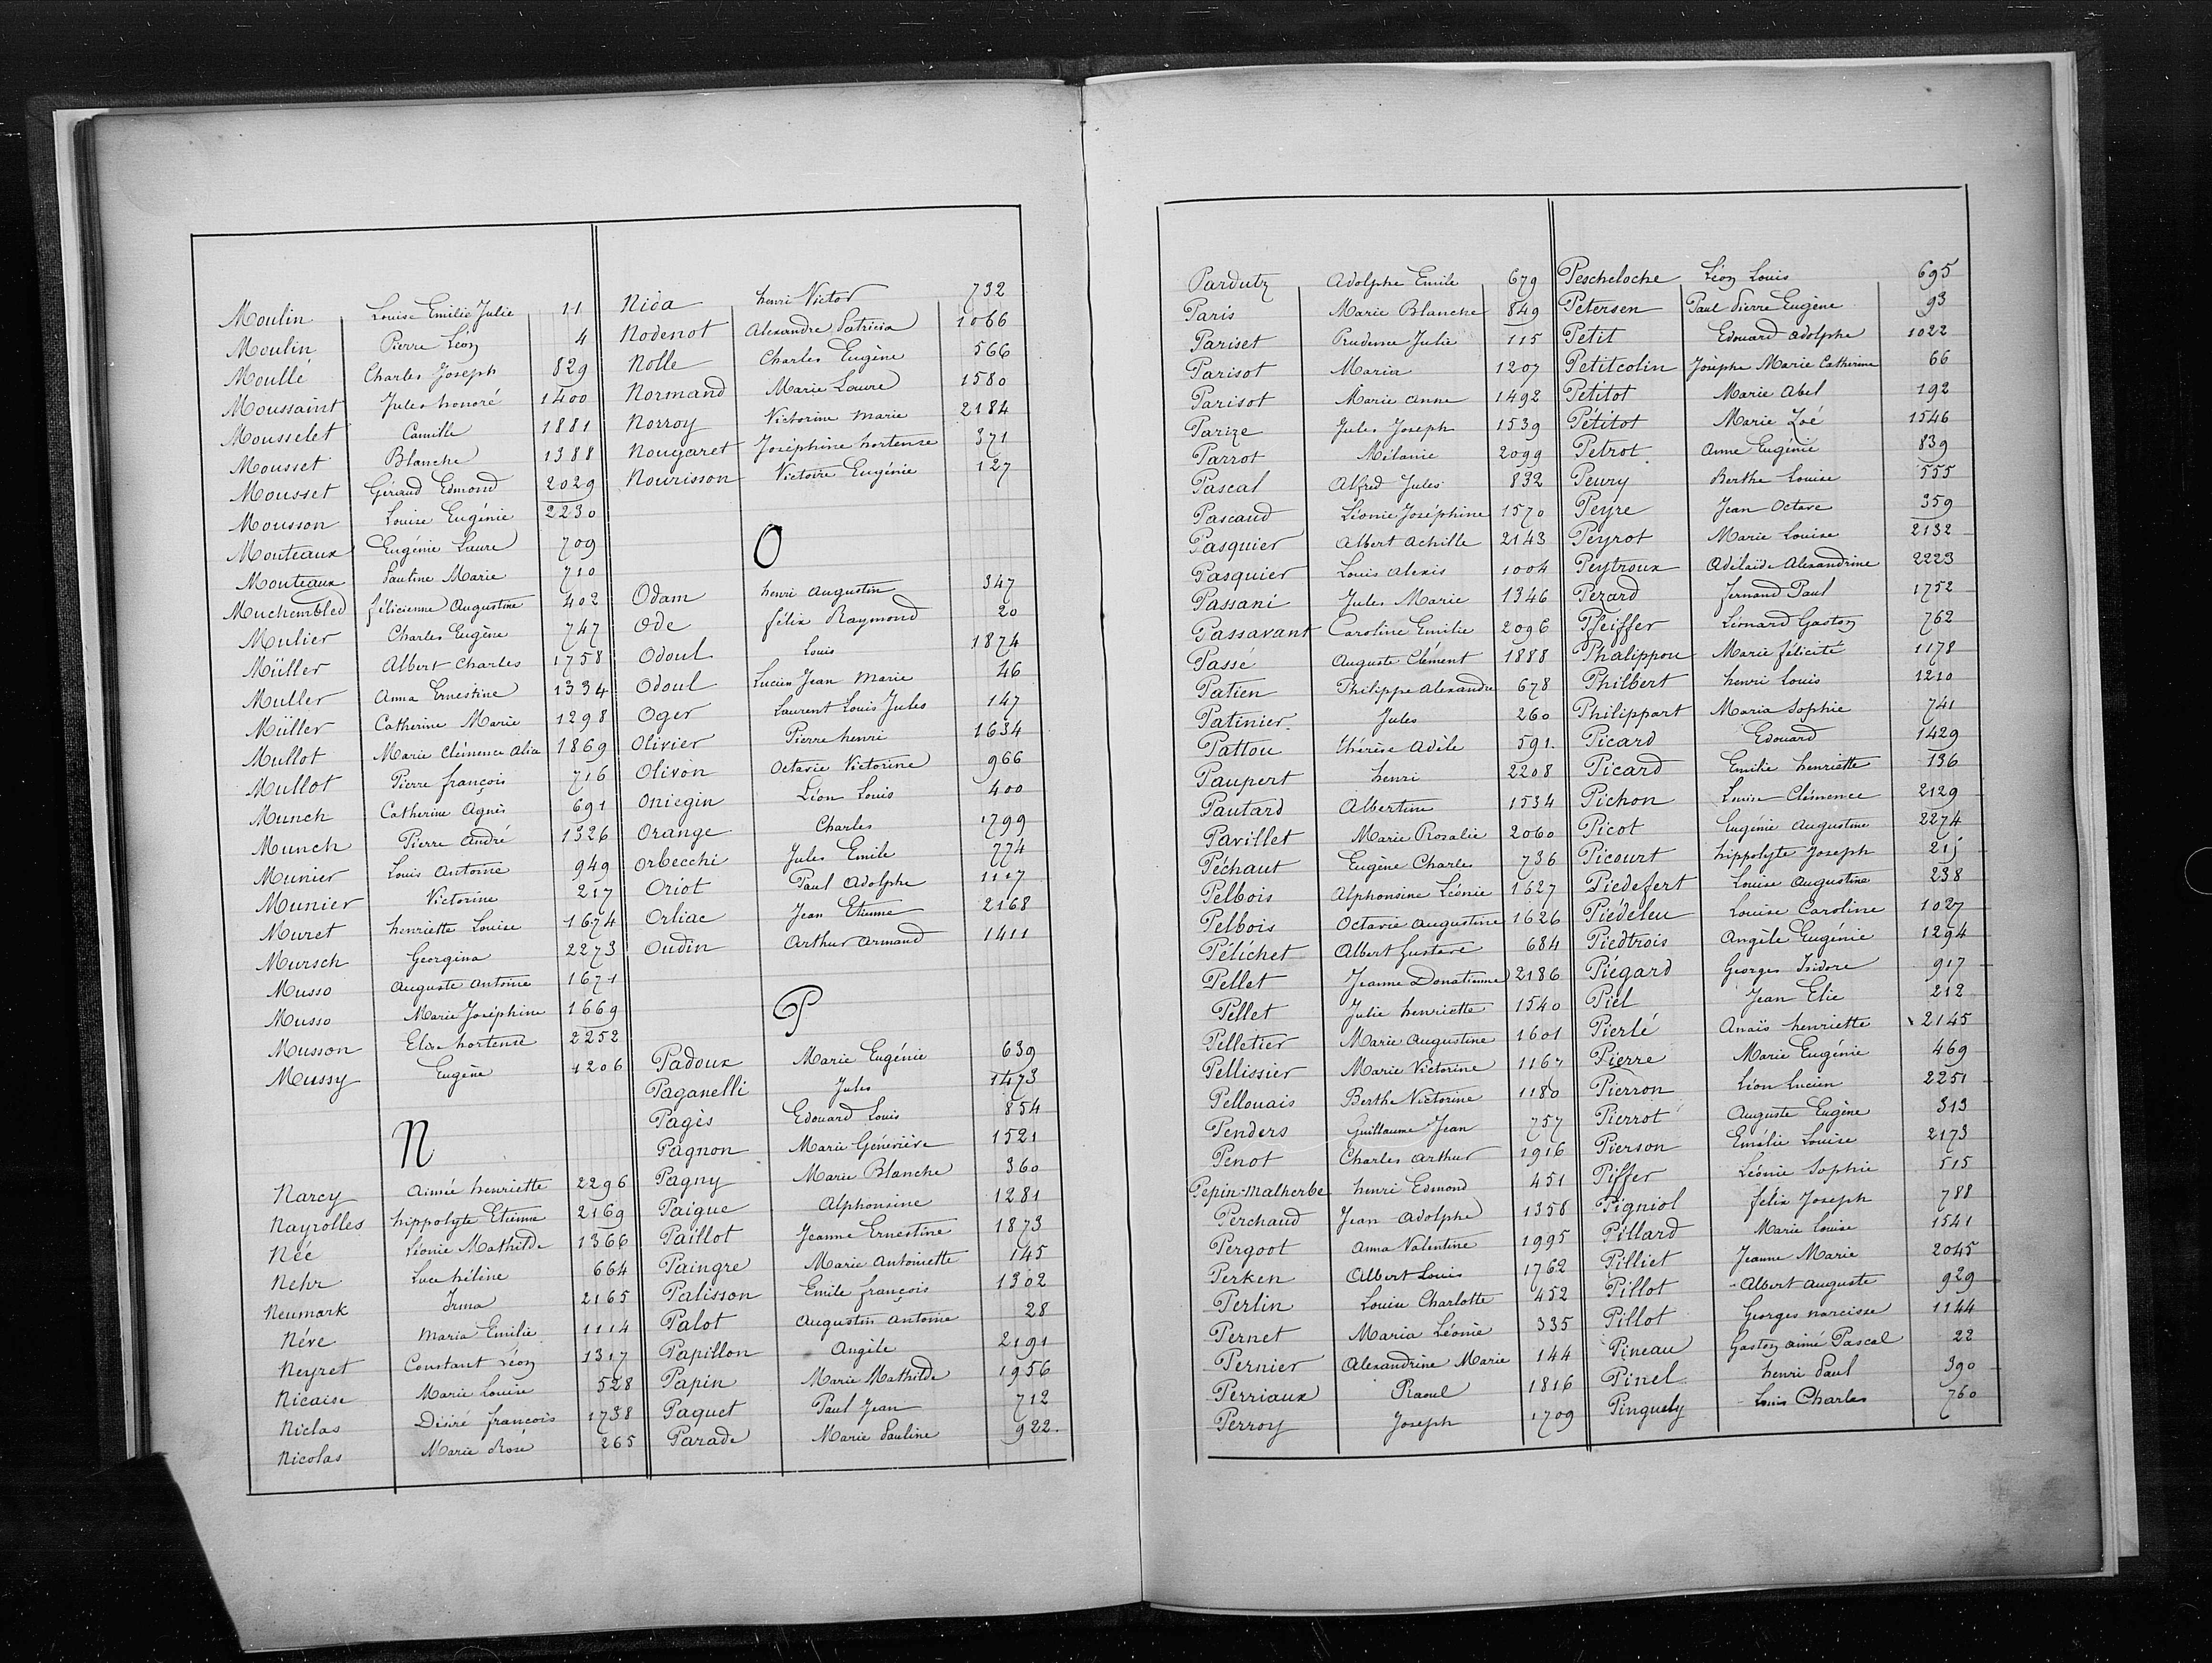 Moulin Louise Emilie Julie 11
Moulin Pierre Léon 4
Moullé Charles Joseph 829
Moussaint Jules honoré 1400
Mousselet Camille 1881
Mousset Blanche 1388
Mousset Géraud Edmond 2029
Mousson Louise Eugénie 2230
Mouteaux Eugénie Laure 709
Mouteaux Pauline Marie 710
Muchembled félicienne Augustine 402
Mulier Charles Eugène 747
Müller Albert Charles 1758
Muller Anna Ernestine 1334
Müller Catherine Marie 1298
Mullot Marie Clémence Alia 1869
Mullot Pierre françois 716
Munch Catherine Agnès 691
Munch Pierre André 1326
Munier Louis Antoine 949
Munier Victorine 217
Muret henriette Louise 1674
Mursch Georgina 2273
Musso Auguste Antoine 1671
Musso Marie Joséphine 1669
Musson Elise hortense 2252
Mussy Eugène 1206
N
Narcy Aimée henriette 2296
Nayrolles hippolyte Etienne 2169
Née Léonie Mathilde 1366
Nehr Luce hélène 664
Neumark Irma 2165
Néve Maria Emilie 1114
Neyret Constant Léon 1317
Nicaise Marie Louise 528
Niclas Désiré françois 1738
Nicolas Marie Rose 265
Nida henri Victor 732
Nodenot Alexandre Patricia 1066
Nolle Charles Eugène 566
Normand Marie Laure 1580
Norroy Victorine Marie 2184
Nougaret Joséphine hortense 371
Nourisson Victoire Eugénie 127
O
Odam henri Augustin 347
Ode félix Raymond 20
Odoul Louis 1874
Odoul Lucien Jean Marie 46
Oger Laurent Louis Jules 147
Olivier Pierre henri 1634
Olivon Octavie Victorine 966
Oniegin Léon Louis 400
Orange Charles 1799
Orbecchi Jules Emile 774
Oriot Paul Adolphe 1117
Orliac Jean Etienne 2168
Oudin Arthur Armand 1411
P
Padoux Marie Eugénie 639
Paganelli Jules 1473
Pagès Edouard Louis 854
Pagnon Marie Géneviève 1521
Pagny Marie Blanche 360
Paigue Alphonsine 1281
Paillot Jeanne Ernestine 1873
Paingre Marie Antoinette 145
Palisson Emile françois 1302
Palot Augustin Antoine 28
Papillon Angèle 2191
Papin Marie Mathilde 1956
Paquet Paul Jean 712
Parade Marie Pauline 922
Pardutz Adolphe Emile 679
Paris Marie Blanche 849
Pariset Prudence Julie 115
Parisot Maria 1207
Parisot Marie Anne 1492
Parize Jules Joseph 1539
Parrot Mélanie 2099
Pascal Alfred Jules 832
Pascaud Léonie Joséphine 1570
Pasquier Albert Achille 2143
Pasquier Louis Alexis 1004
Passani Jules Marie 1346
Passavant Caroline Emilie 2096
Passé Auguste Clément 1888
Patien Philippe Alexandre 678
Patinier Jules 260
Pattou Thérèse Adèle 591
Paupert henri 2208
Pautard Albertine 1534
Pavillet Marie Rosalie 2060
Péchaut Eugène Charles 736
Pelbois Alphonsine Léonie 1627
Pelbois Octavie Augustine 1626
Pélichet Albert Gustave 684
Pellet Jeanne Donatienne 2186
Pellet Julie henriette 1540
Pelletier Marie Augustine 1601
Pellissier Marie Victorine 1167
Pellouais Berthe Victorine 1180
Penders Guillaume Jean 757
Penot Charles Arthur 1916
Pepin-Malherbe henri Edmond 451
Perchaud Jean Adolphe 1358
Pergoot Anna Valentine 1995
Perken Albert Louis 1762
Perlin Louise Charlotte 452
Pernet Maria Léonie 335
Pernier Alexandrine Marie 144
Perriaux Raoul 1816
Perroy Joseph 1709
Pescheloche Léon Louis 695
Petersen Paul Pierre Eugène 93
Petit Edouard Adolphe 1022
Petitcolin Josèphe Marie Catherine 66
Petitot Marie Abel 192
Pétitot Marie Zoé 1546
Petrot Anne Eugénie 839
Peury Berthe Louise 555
Peyre Jean Octave 359
Peyrot Marie Louise 2132
Peytroux Adélaïde Alexandrine 2223
Pezard fernand Paul 1752
Pfeiffer Léonard Gaston 762
Phalippou Marie félicité 1178
Philbert henri Louis 1210
Philippart Maria Sophie 741
Picard Edouard 1429
Picard Emilie henriette 136
Pichon Louise Clémence 2129
Picot Eugénie Augustine 2274
Picourt hippolyte Joseph 215
Piedefert Louise Augustine 238
Piédeleu Louise Caroline 1027
Piedtrois Angèle Eugénie 1294
Piégard Georges Isidore 917
Piel Jean Elie 212
Pierlé Anaïs henriette 2145
Pierre Marie Eugénie 469
Pierron Léon Lucien 2251
Pierrot Auguste Eugène 313
Pierson Emélie Louise 2173
Piffer Léonie Sophie 515
Pigniol félix Joseph 788
Pillard Marie Louise 1541
Pilliet Jeanne Marie 2045
Pillot Albert Auguste 929
Pillot Georges narcisse 1144
Pineau Gaston aimé Pascal 22
Pinel henri Paul 390
Pinguely Louis Charles 760